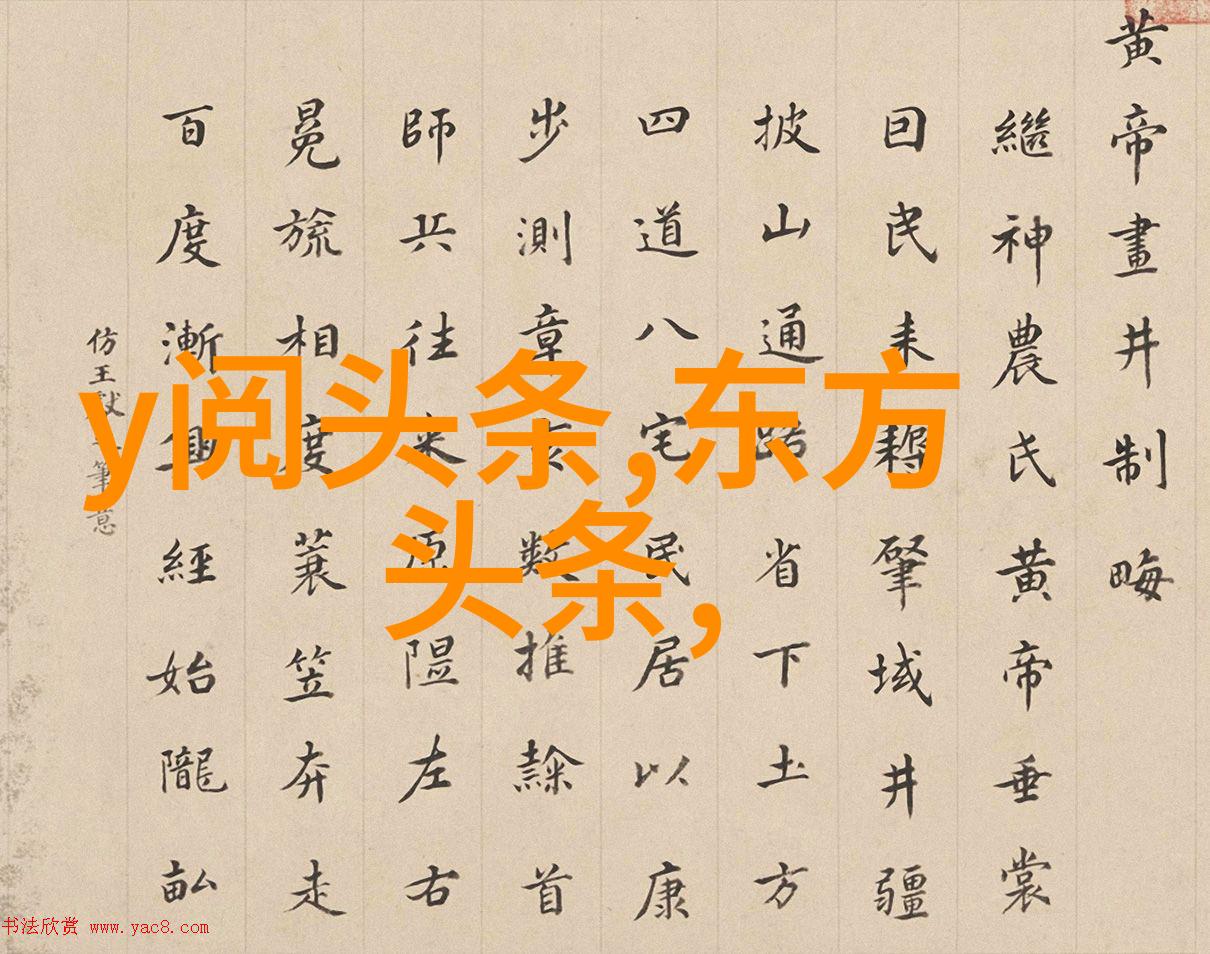 黄帝畫井制畮
繼神農氏黄帝垂裳
囙民耒耨肇域井疆
披山通路省下土方
四道八宅民居以康
步測章亥數推隷首
師兵往来原隰左右
冕旒相度蓑笠奔走
百度漸經始隴畝
仿王献之筆意
y阅头条,东方
头条,
书法欣赏 www.yac8.com